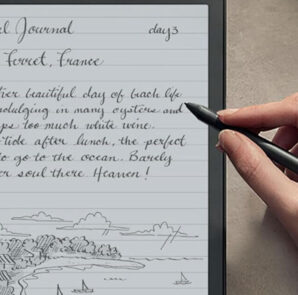 Journal day 3
Ferret, France
beautiful day of beach life
indulging in many oysters and
too much white wine.
tide after lunch, the perfect
to go to the ocean. Barely
soul there Heaven!